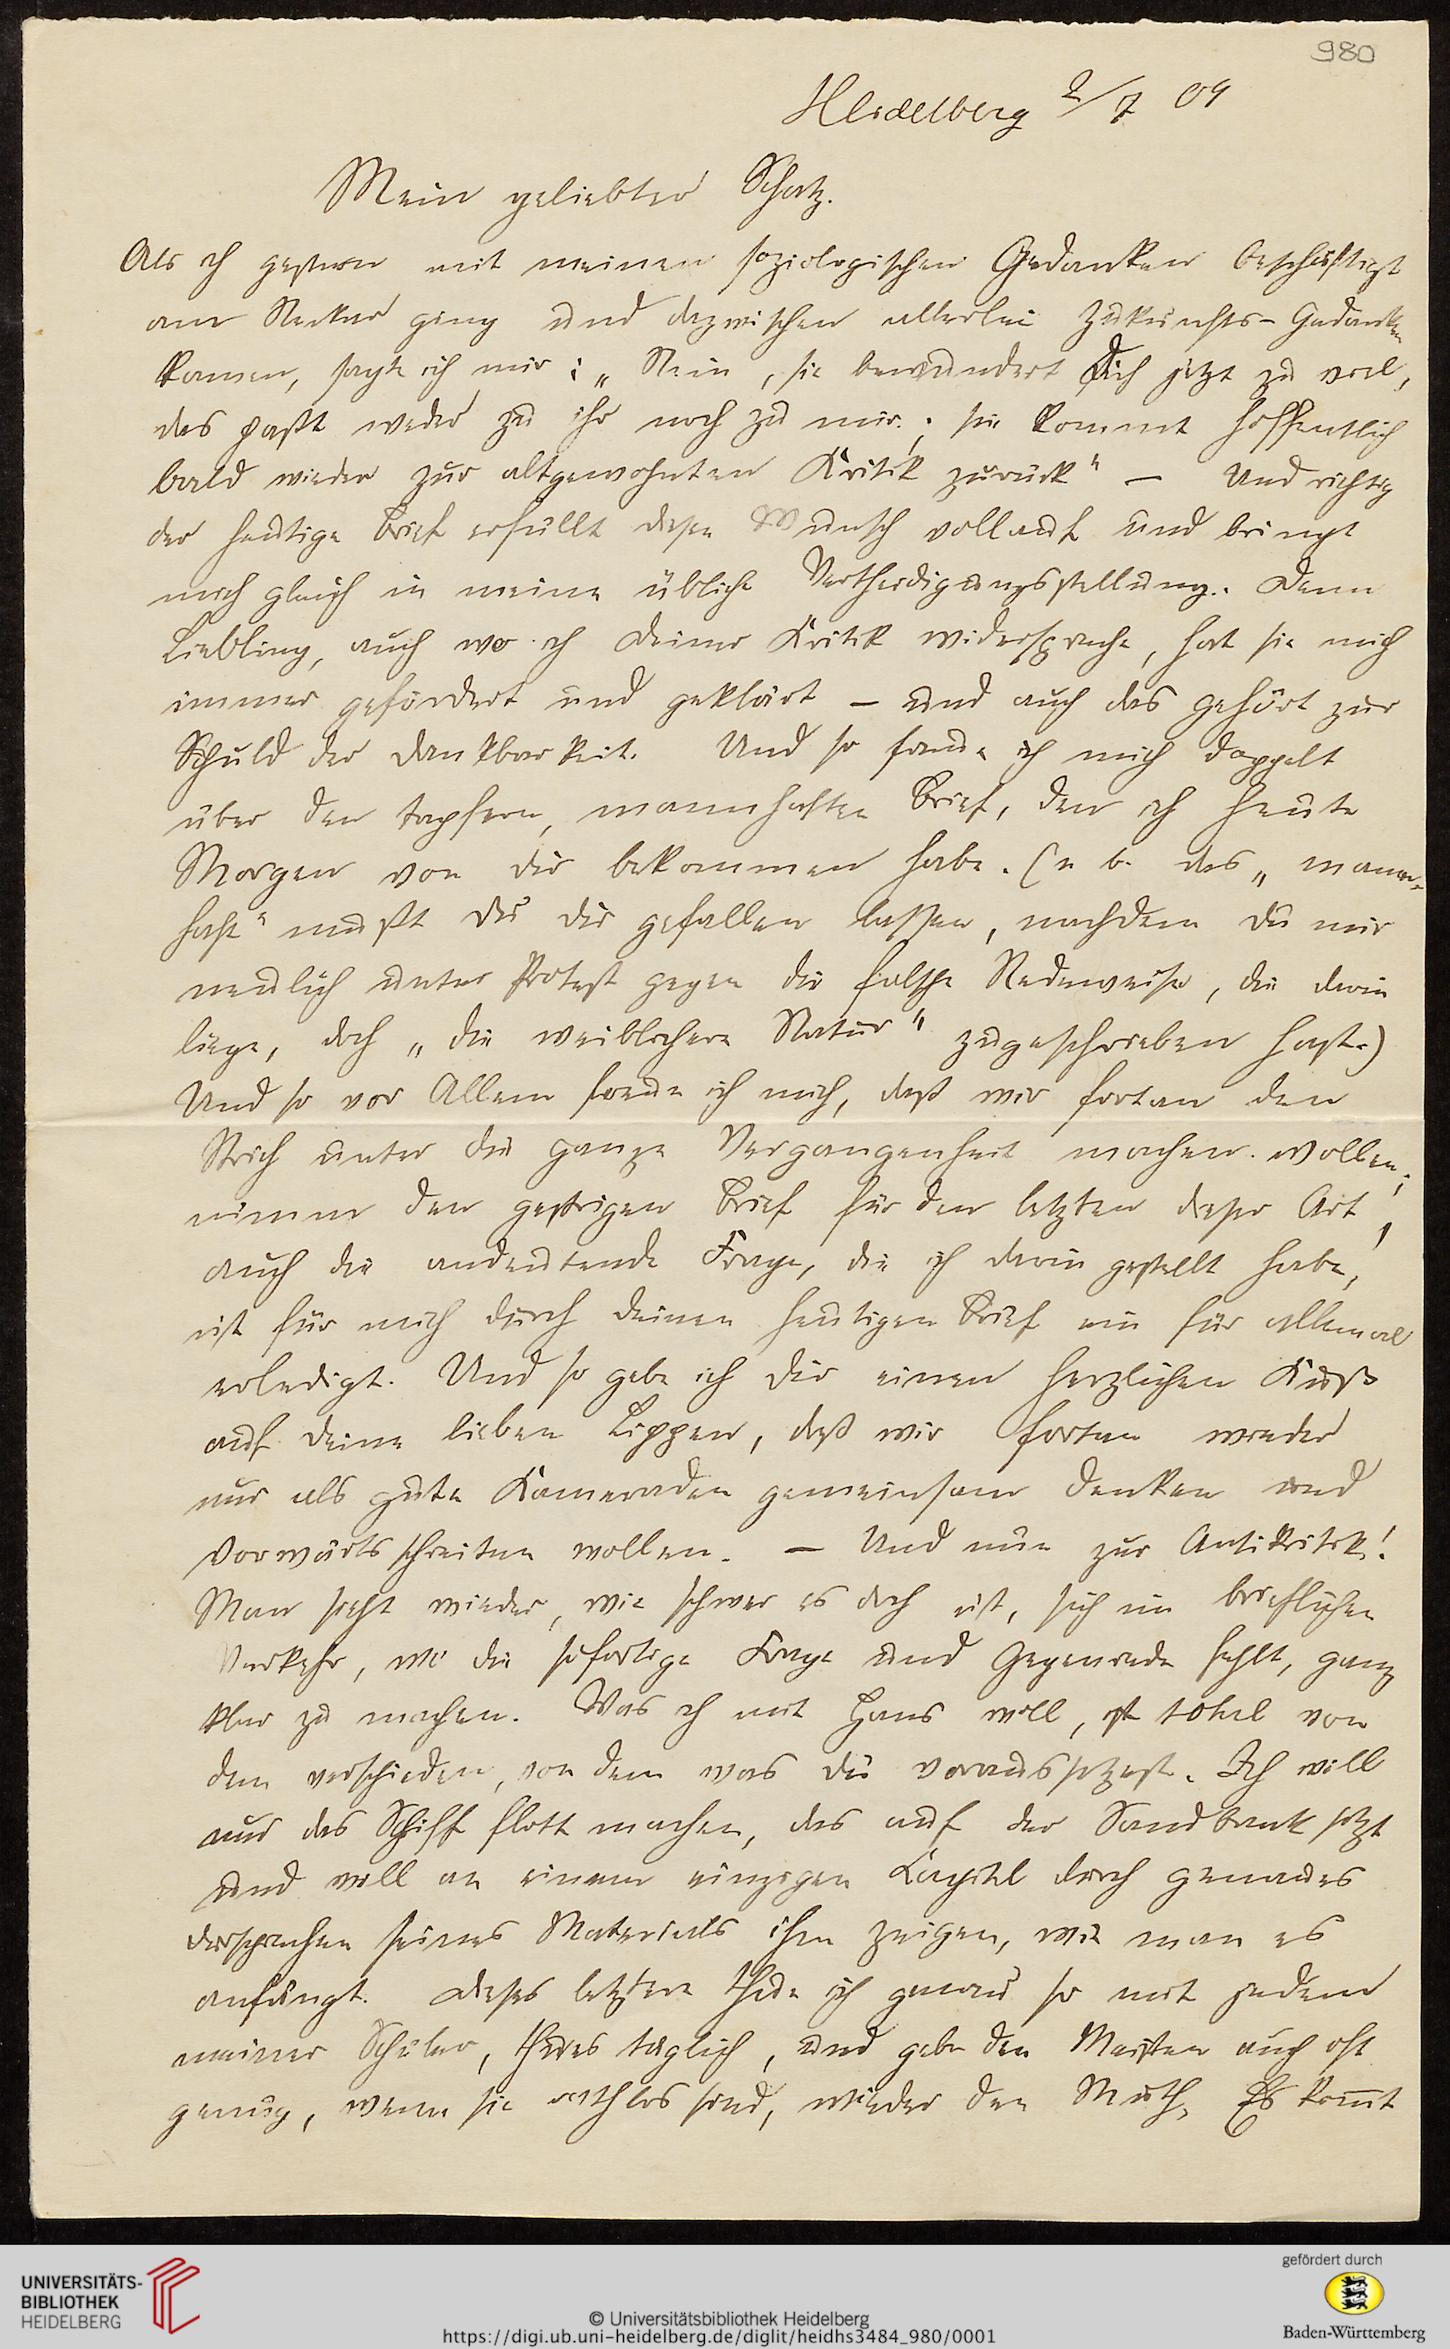 980
Heidelberg 2/7 09
Mein geliebter Schatz.
Als ich gestern mit meinen soziologischen Gedanken beschäftigt
am Neckar ging und dazwischen allerlei Zukunfts-Gedanken
kamen, sagte ich mir: „Nein, sie bewundert Dich jetzt zu viel,
das paßt weder zu ihr noch zu mir; sie kommt hoffentlich
bald wieder zur altgewohnten Kritik zurück" — Und richtig
der heutige Brief erfüllt diesen Wunsch vollauf und bringt
mich gleich in meine übliche Vertheidigungsstellung. Denn
Liebling, auch wo ich Deiner Kritik widerspreche, hat sie mich
immer gefördert und geklärt — und auch das gehört zur
Schuld der Dankbarkeit. Und so freue ich mich doppelt
über den tapfern, mannhaften Brief, den ich heute
Morgen von Dir bekommen habe. (n b. das „mann-
haft" mußt Du Dir gefallen lassen, nachdem Du mir
neulich unter Protest gegen die falsche Redeweise, die darin
liege, doch „die weiblichere Natur" zugeschrieben hast.)
Und so vor Allem freue ich mich, daß wir fortan den
Strich unter die ganze Vergangenheit machen wollen;
nimm den gestrigen Brief für den letzten dieser Art!
auch die andeutende Frage, die ich darin gestellt habe,
ist für mich durch Deinen heutigen Brief ein für allemal
erledigt. Und so gebe ich Dir einen herzlichen Kuß
auf Deine lieben Lippen, daß wir fortan wieder
nur als gute Kameraden gemeinsam denken und
vorwärts schreiten wollen. — Und nun zur Antikritik!
Man sieht wieder, wie schwer es doch ist, sich im brieflichen
Verkehr, wo die sofortige Frage und Gegenrede fehlt, ganz
klar zu machen. Was ich mit Hans will, ist total von
dem verschieden, von dem was Du voraussetzest. Ich will
nur das Schiff flott machen, das auf der Sandbank sitzt
und will an einem einzigen Kapitel durch genaues
durchsprechen seines Materials ihm zeigen, wie man es
anfängt. Dieses letztere thue ich genau so mit jedem
meiner Schüler, thue es täglich, und gebe den Meisten auch oft
genug, wenn sie rathlos sind, wieder den Muth. Es kommt
UNIVERSITÄTS-
BIBLIOTHEK
HEIDELBERG
© Universitätsbibliothek Heidelberg
https://digi.ub.uni-heidelberg.de/diglit/heidhs3484_980/0001
gefördert durch
Baden-Württemberg